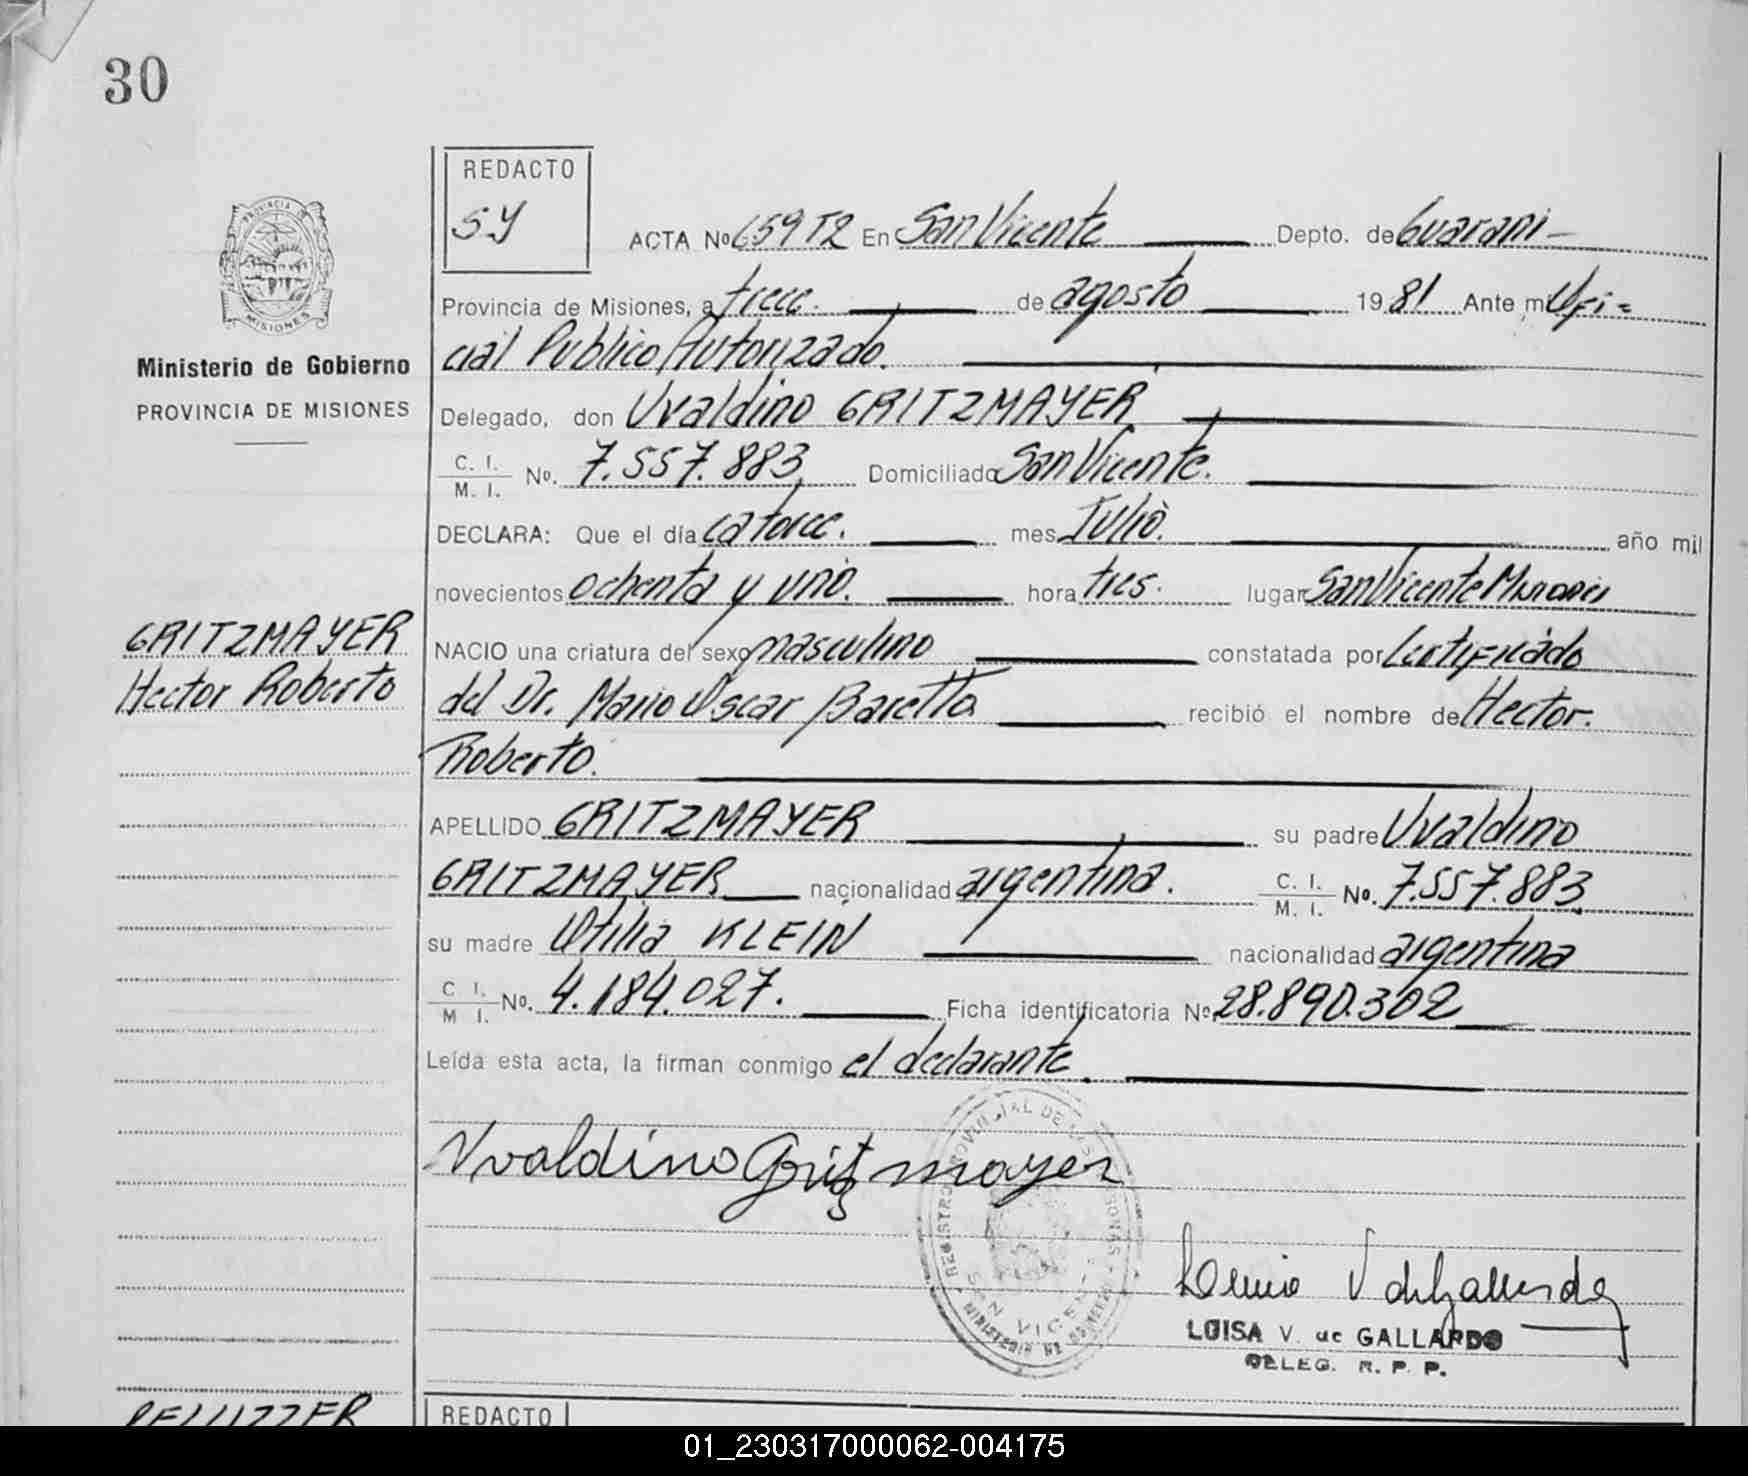 30
REDACTO
SY
ACTA No 659 T2 En San Vicente Depto. de Guarani
Provincia de Misiones, a trece. de agosto 1981 Ante mi Ofi=
cial Publico Autorizado.
PROVINCIA DE
MISIONES
Ministerio de Gobierno
PROVINCIA DE MISIONES
Delegado, don Uvaldino GRITZMAYER
C. I.
M. I. No. 7.557.883, Domiciliado San Vicente.
DECLARA: Que el día catorce. mes Julio. año mil
novecientos ochenta y uno. hora tres. lugar San Vicente Misiones
GRITZMAYER
Hector Roberto
NACIO una criatura del sexo masculino constatada por Certificado
del Dr. Mario Oscar Baretta recibió el nombre de Hector.
Roberto.
APELLIDO GRITZMAYER su padre Uvaldino
GRITZMAYER nacionalidad argentina. C. I.
M. I. No. 7.557.883,
su madre Otilia KLEIN nacionalidad argentina
C I.
M I. No. 4.184.027. Ficha identificatoria No 28.890.302
Leída esta acta, la firman conmigo el declarante.
Uvaldino Gritzmayer
REGISTRO PROVINCIAL DE LAS PERSONAS
SAN VICENTE
Luisa V de Gallardo
LUISA V. de GALLARDO
DELEG. R. P. P.
REDACTO
01_230317000062-004175